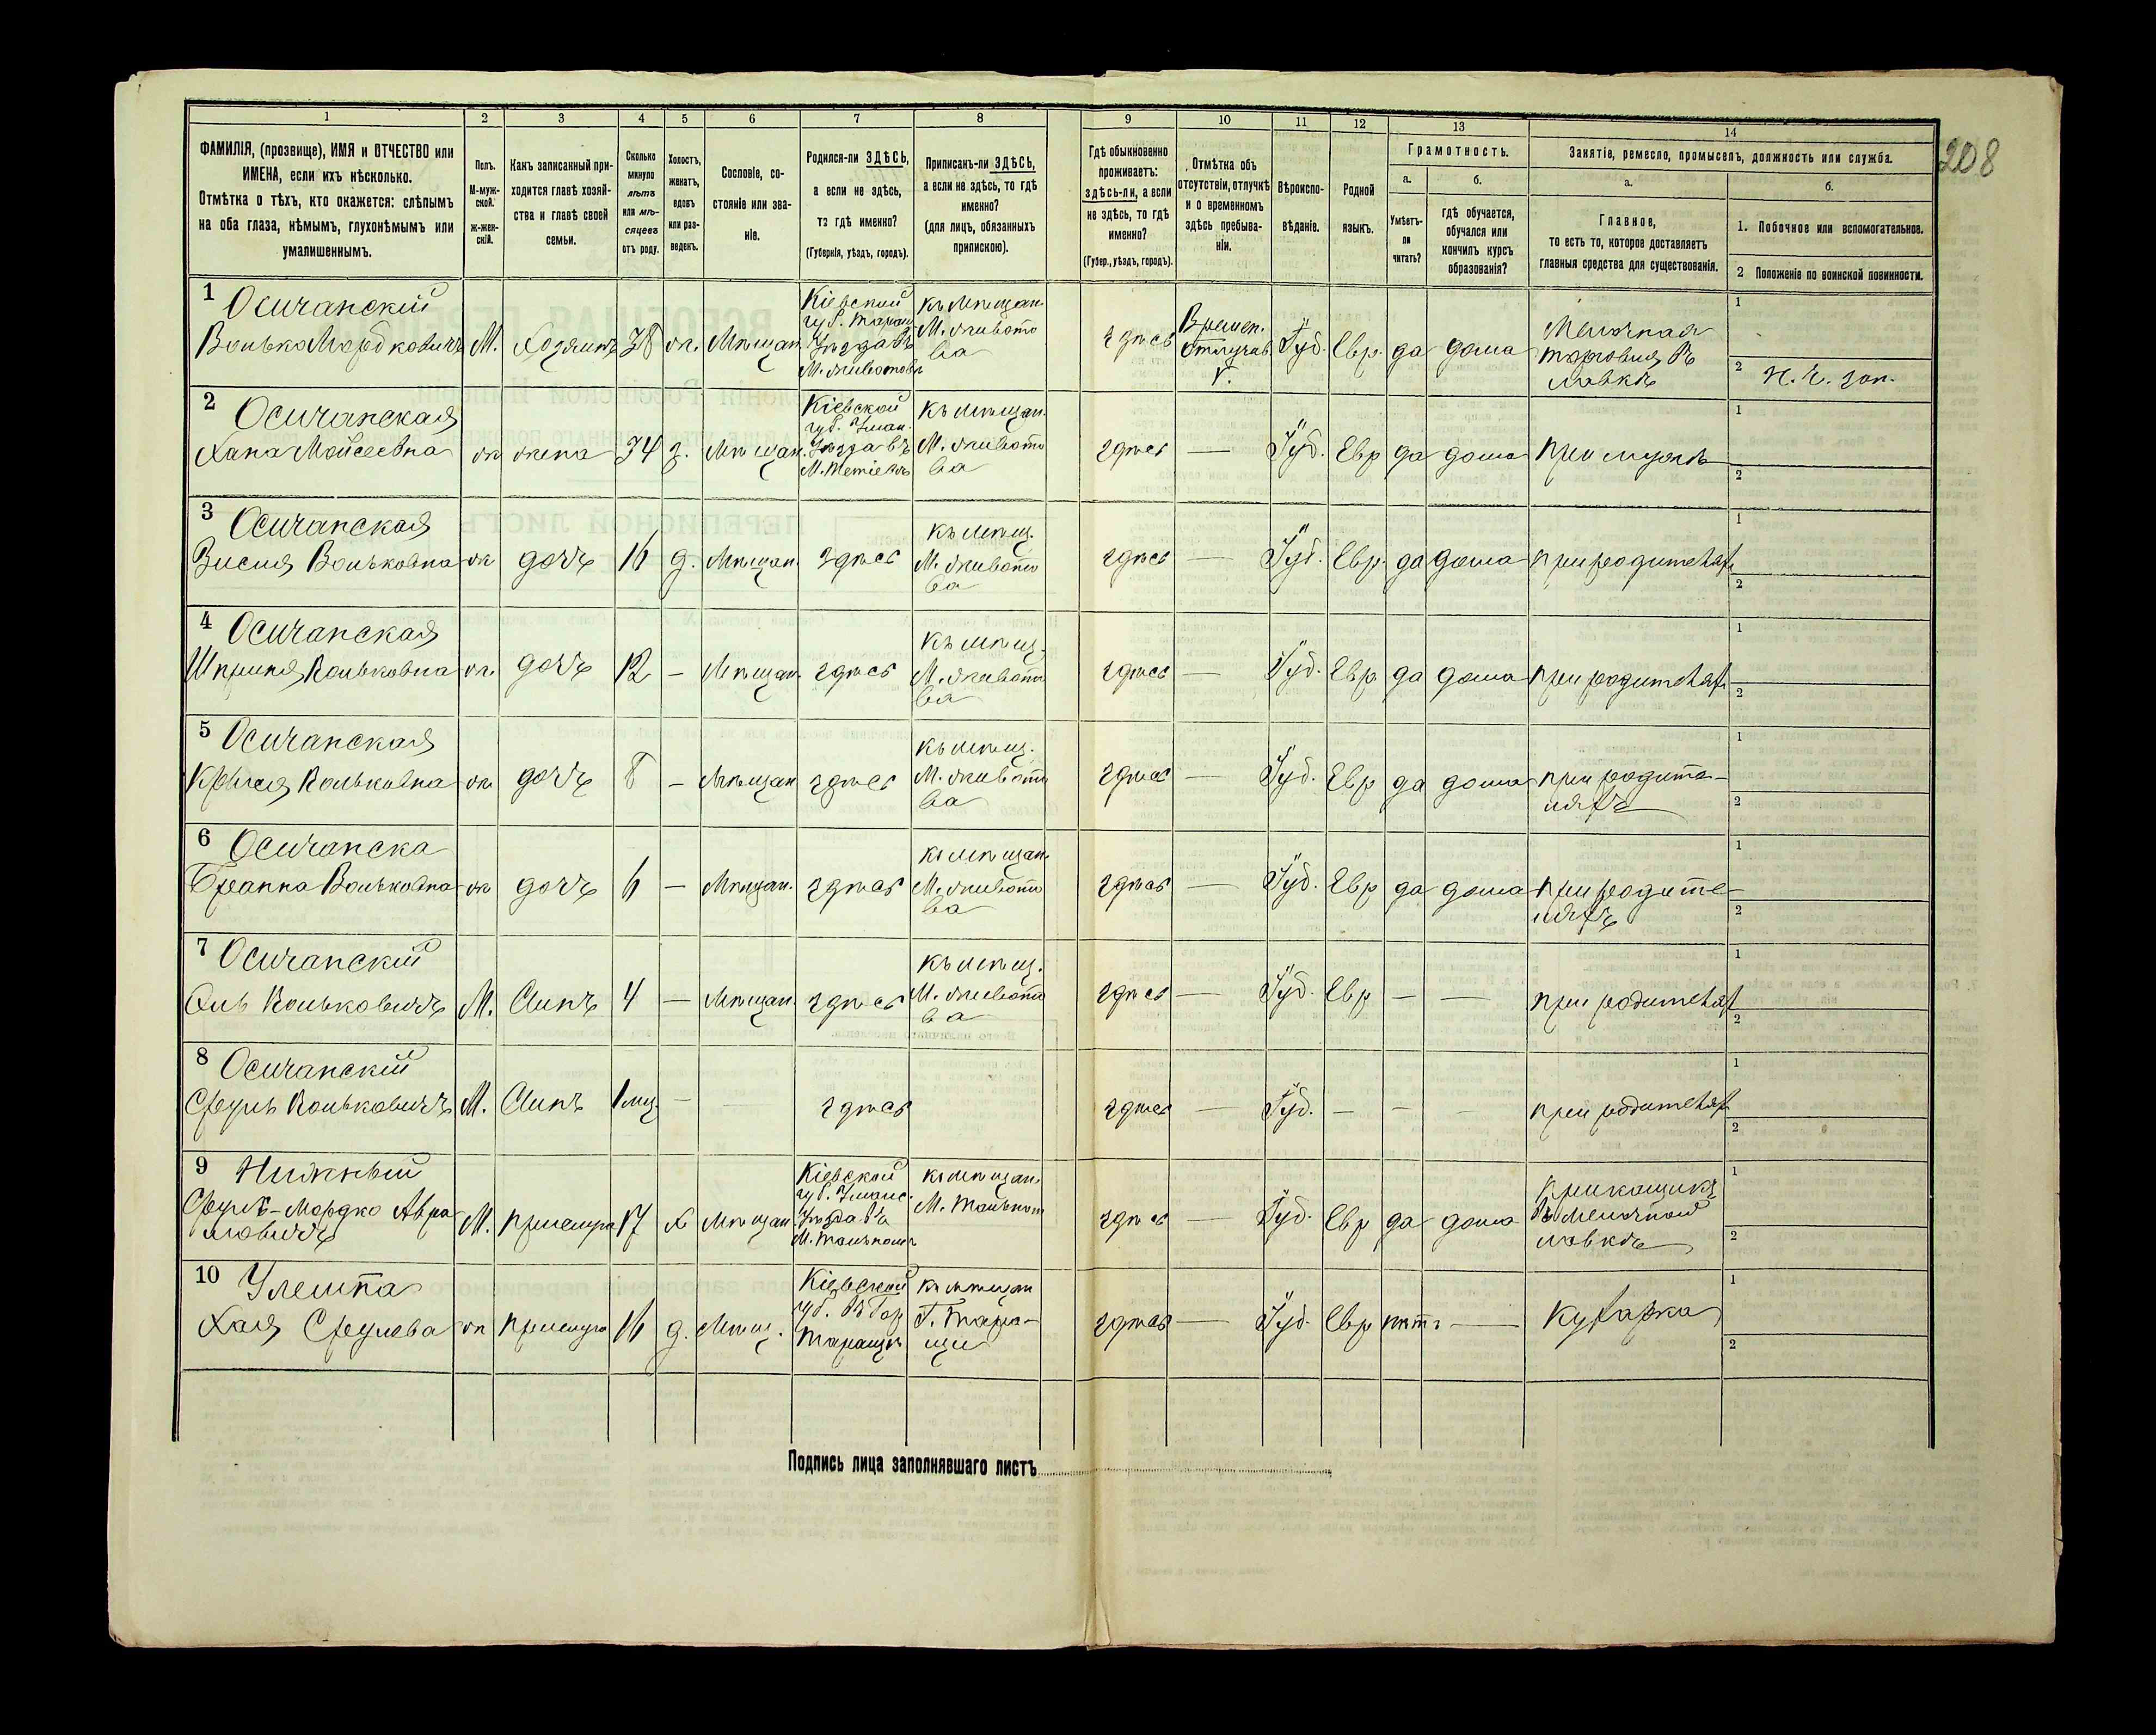 208
1 2 3 4 5 6 7 8 9 10 11 12 13 14
ФАМИЛІЯ, (прозвище), ИМЯ и ОТЧЕСТВО или
ИМЕНА, если ихъ нѣсколько.
Отмѣтка о тѣхъ, кто окажется: слѣпымъ
на оба глаза, нѣмымъ, глухонѣмымъ или
умалишеннымъ.
Полъ.
М-муж-
ской.
Ж-жен-
скій.
Какъ записанный при-
ходится главѣ хозяй-
ства и главѣ своей
семьи.
Сколько
минуло
лѣтъ
или мѣ-
сяцевъ
отъ роду.
Холостъ,
женатъ,
вдовъ
или раз-
веденъ.
Сословіе, со-
стояніе или зва-
ніе.
Родился-ли ЗДѢСЬ,
а если не здѣсь,
то гдѣ именно?
(Губернія, уѣздъ, городъ).
Приписанъ-ли ЗДѢСЬ,
а если не здѣсь, то гдѣ
именно?
(для лицъ, обязанныхъ
припискою).
Гдѣ обыкновенно
проживаетъ:
здѣсь-ли, а если
не здѣсь, то гдѣ
именно?
(Губер., уѣздъ, городъ).
Отмѣтка объ
отсутствіи, отлучкѣ
и о временномъ
здѣсь пребыва-
ніи.
Вѣроиспо-
вѣданіе.
Родной
языкъ.
Грамотность.
а.
Умѣетъ-
ли
читать?
б.
гдѣ обучается,
обучался или
кончилъ курсъ
образованія?
Занятіе, ремесло, промыселъ, должность или служба.
а.
Главное,
то есть то, которое доставляетъ
главныя средства для существованія.
б.
1. Побочное или вспомогательное.
2 Положеніе по воинской повинности.
1 Осичанскій
Волько Мордковичъ М. Хозяинъ 38 ж. Мѣщан.
Кіевской
губ. Таращ.
Уѣзда въ
М. Животовѣ
къ мѣщан.
М. Живото
ва
здѣсь
Времен.
отлучав.
Іуд. Евр. да дома
Мелочная
торговля въ
лавкѣ
1
2
2 Осичанская
Хана Мойсеевна ж жена 34 з. Мѣщан.
Кіевской
губ. Уман.
Уѣзда въ
М. Тетіевъ
къ мѣщан.
М. Живото
ва
здѣсь — Іуд. Евр да дома при мужѣ
1
2
3 Осичанская
Вольковна ж дочь 16 д. Мѣщан. здѣсь
къ мѣщ.
М. Живото
ва
здѣсь — Іуд. Евр. да дома при родителяхъ
1
2
4 Осичанская
Вольковна ж. дочь 12 — Мѣщан. здѣсь
къ мѣщ.
М. Живото
ва
здѣсь — Іуд. Евр да дома при родителяхъ
1
2
5 Осичанская
Вольковна ж дочь 8 — Мѣщан здѣсь
къ мѣщ.
М. Живото
ва
здѣсь — Іуд. Евр да дома при родите-
ляхъ
1
2
6 Осичанска
Бранна Вольковна ж дочь 6 — Мѣщан. здѣсь
къ мѣщан.
М. Живото
ва
здѣсь — Іуд. Евр да дома при родите-
ляхъ
1
2
7 Осичанскій
Вольковичъ М. Сынъ 4 — Мѣщан. здѣсь
къ мѣщ.
М. Живото
ва
здѣсь — Іуд. Евр — — при родителяхъ
1
2
8 Осичанскій
Сруль Вольковичъ М. Сынъ 1 мц. — — здѣсь
здѣсь — Іуд. — — — при родителяхъ
1
2
9 Нижный
Сруль-Мордко Авра
мовичъ М. прислуга 17 х Мѣщан.
Кіевской
губ. Уманс.
Уѣзда въ
М.
къ мѣщан.
М.
здѣсь — Іуд. Евр да дома
прикащикъ
въ мелочной
лавкѣ
1
2
10
Хая Срулева ж прислуга 16 д. Мѣщ.
Кіевской
губ. въ Гор
Таращѣ
къ мѣщан
Г. Тара-
щи
здѣсь — Іуд. Евр нѣтъ — Кухарка
1
2
Подпись лица заполнявшаго листъ